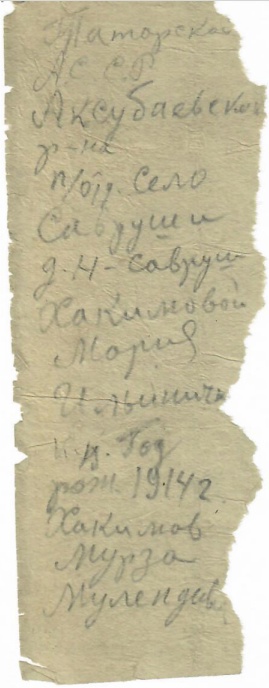 Таторской
АССР
Аксубаевской
р-на
п/отд. село
Савруши
д. Н-савруш
Хакимовой
Мария
Ильинич
К.Д. Год
рож. 1914 г
Хакимов
Мурза
Мулендов